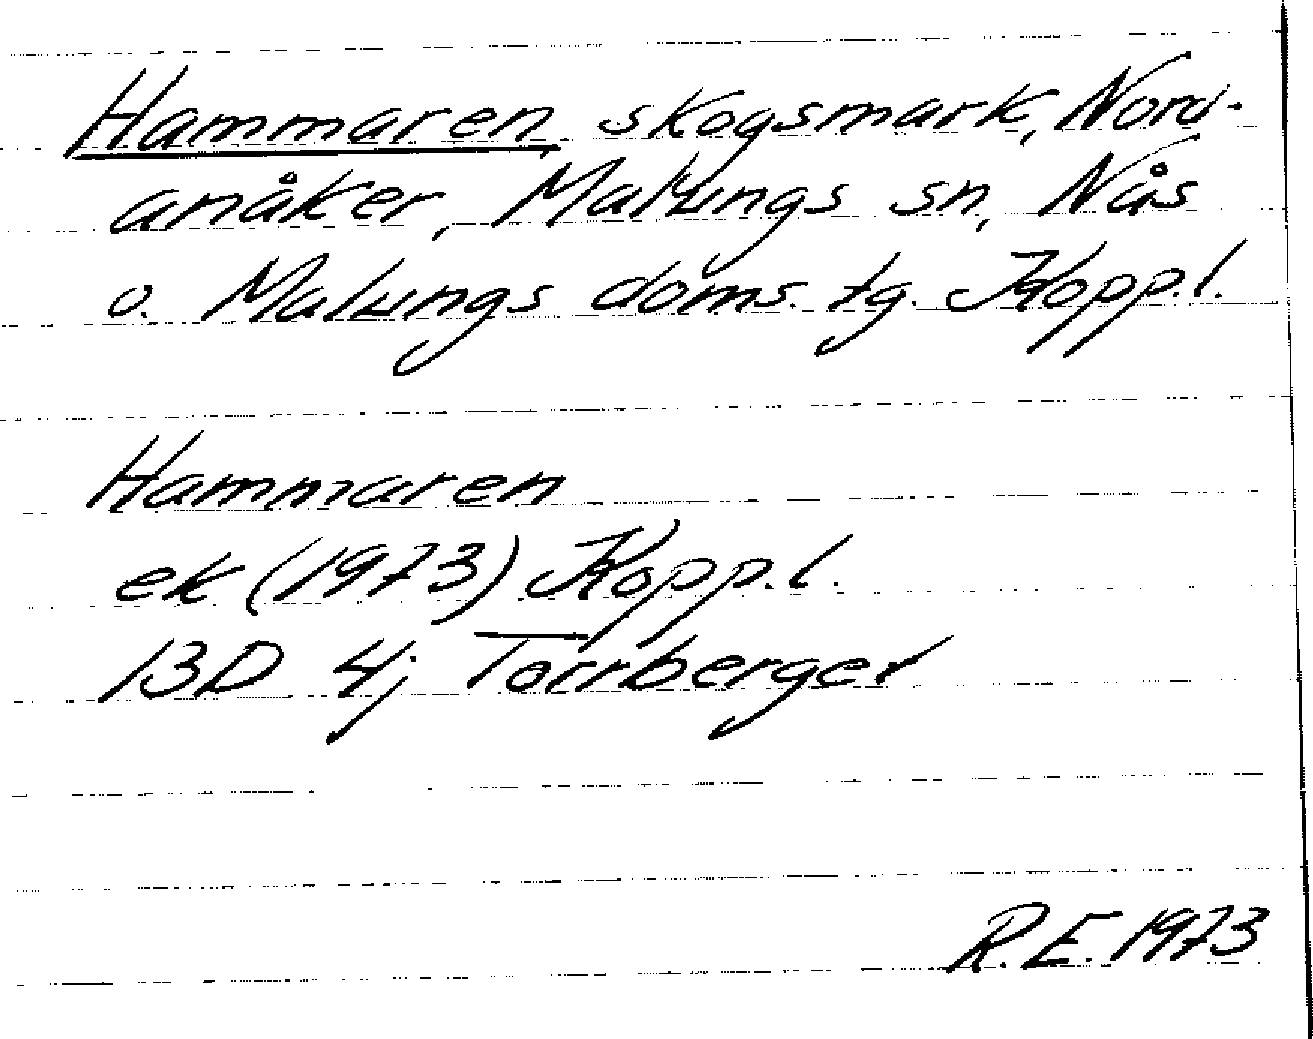 Hammaren, skogsmark, Nord-
anåker, Malungs sn, Nås
o. Malungs doms. tg. Kopp.l.
Hammaren
ek (1973) Kopp.l.
13D 4j Torrberget
R.E. 1973